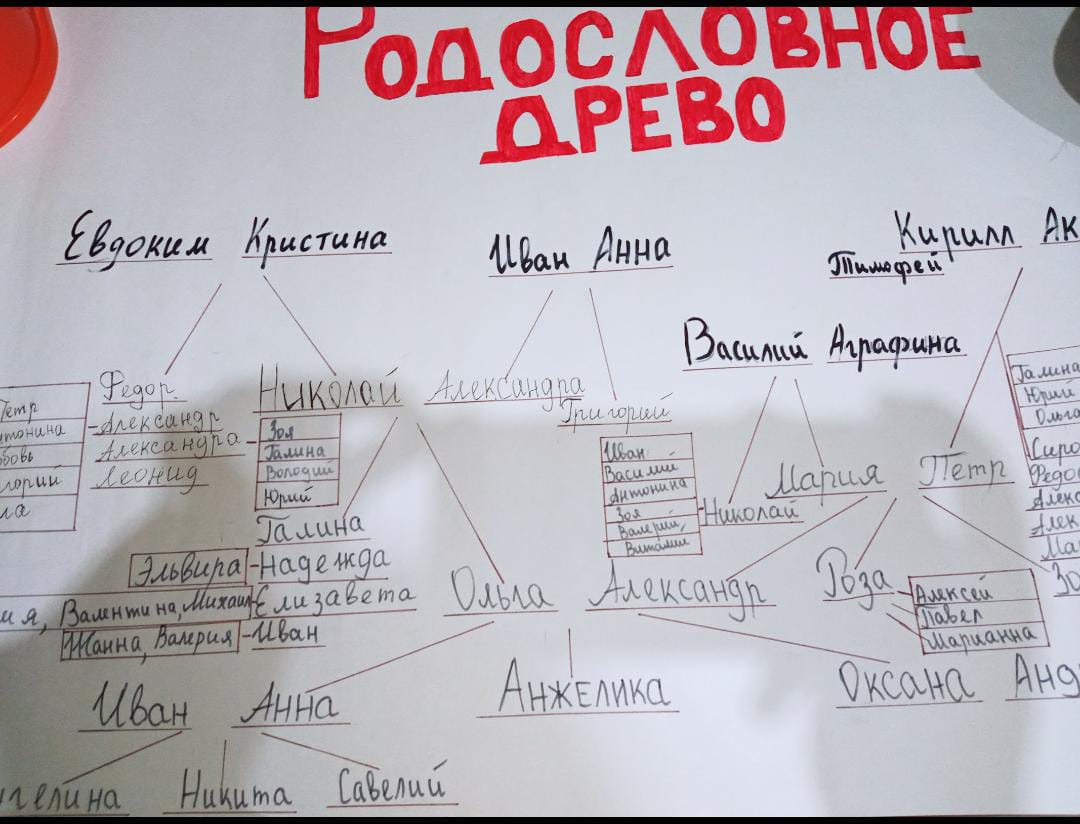 РОДОСЛОВНОЕ
ДРЕВО
Евдоким Кристина
Иван Анна
Кирилл Ак
Тимофей
Василий Аграфина
Федор
Александр
Александра
Леонид
Петр
Николай
Зоя
Галина
Володий
Юрий
Александра
Григорий
Иван
Василий
Антонина
Зоя
Валерий,
Виталий
Николай
Мария
Петр
Галина
Юрий
Ольга
Галина
Эльвира - Надежда
Валентина, Михаил Елизавета
Жанна, Валерия - Иван
Ольга Александр
Роза
Алексей
Павел
Марианна
Иван Анна
Анжелика
Оксана
Никита Савелий